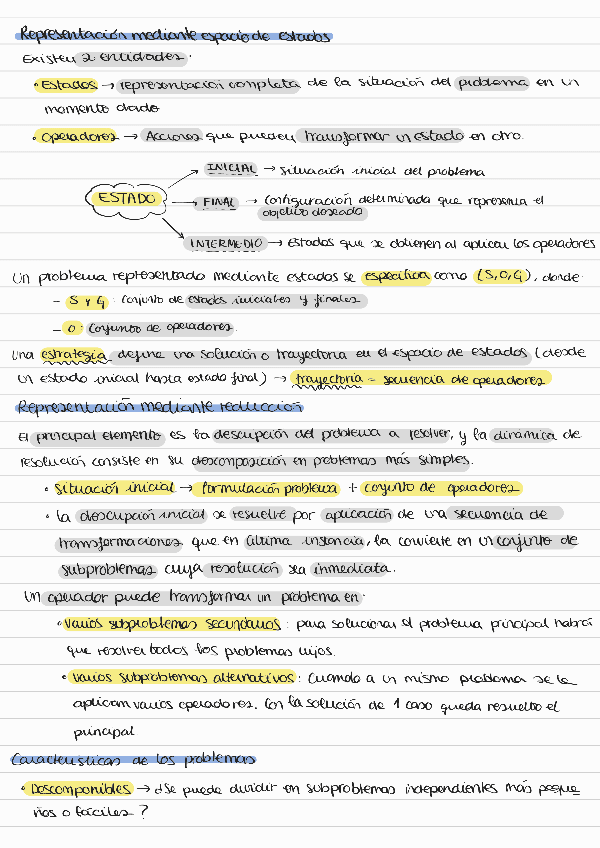 Representación mediante espacio de estados
Existen 2 entidades.
• Estados → representación completa de la situación del problema en un
momento dado
• Operadores → Acciones que pueden transformar un estado en otro.
INICIAL → Situación inicial del problema
ESTADO
FINAL → Configuración determinada que representa el
objetivo deseado
INTERMEDIO → Estados que se obtienen al aplicar los operadores
Un problema representado mediante estados se especifica como (S,O,G), donde
- S y G : Conjunto de estados iniciales y finales
- O : Conjunto de operadores.
Una estrategia define una solución o trayectoria en el espacio de estados (desde
un estado inicial hasta estado final) → trayectoria = secuencia de operadores
Representación mediante reducción
El principal elemento es la descripción del problema a resolver, y la dinámica de
resolución consiste en su descomposición en problemas más simples.
• Situación inicial → formulación problema + conjunto de operadores
• La descripción inicial se resuelve por aplicación de una secuencia de
transformaciones que en última instancia, la convierte en un conjunto de
subproblemas cuya resolución sea inmediata.
Un operador puede transformar un problema en:
• Varios subproblemas secundarios : para solucionar el problema principal habrá
que resolver todos los problemas hijos.
• Varios subproblemas alternativos : Cuando a un mismo problema se le
aplican varios operadores. Con la solución de 1 caso queda resuelto el
principal
Características de los problemas
• Descomponibles → ¿Se puede dividir en subproblemas independientes más peque
ños o fáciles ?